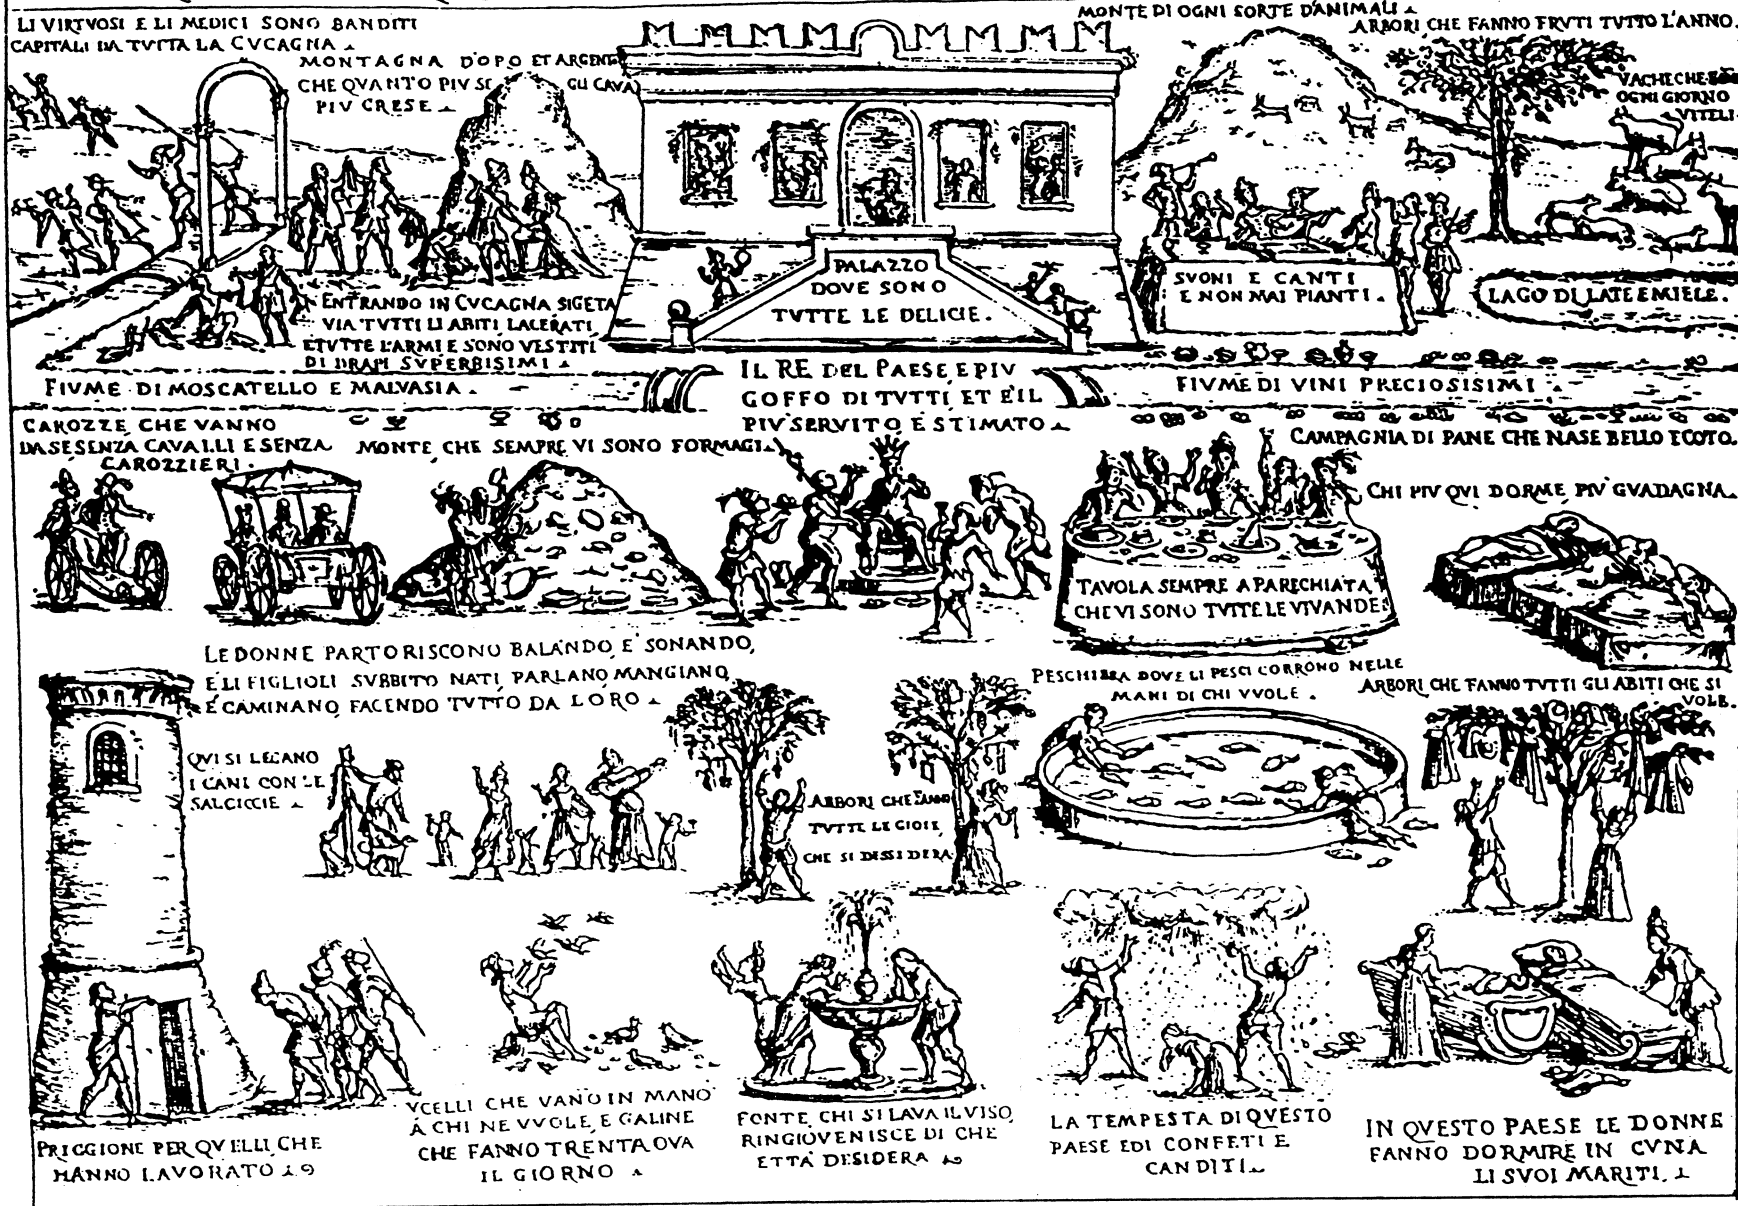 LI VIRTVOSI E LI MEDICI SONO BANDITI
CAPITALI DA TVTTA LA CVCAGNA
MONTAGNA D'ORO ET ARGENTO
CHE QVANTO PIV SE GLI CAVA
PIV CRESE
MONTE DI OGNI SORTE D'ANIMALI
ARBORI, CHE FANNO FRVTI TVTTO L'ANNO.
VACHE CHE
OGNI GIORNO
VITELI
ENTRANDO IN CVCAGNA SI GETA
VIA TVTTI LI ABITI LACERATI
E TVTTE L'ARMI E SONO VESTITI
DI DRAPI SVPERBISIMI
PALAZZO
DOVE SONO
TVTTE LE DELICIE.
SVONI E CANTI
E NON MAI PIANTI.
LAGO DI LATE E MIELE.
FIVME DI MOSCATELLO E MALVASIA.
IL RE DEL PAESE E PIV
GOFFO DI TVTTI ET E'IL
PIV SERVITO E STIMATO
FIVME DI VINI PRECIOSISIMI
CAROZZE CHE VANNO
DA SE SENZA CAVALLI E SENZA
CAROZZIERI.
MONTE, CHE SEMPRE VI SONO FORMAGI
CAMPAGNIA DI PANE CHE NASE BELLO E COTO.
CHI PIV QVI DORME PIV GVADAGNA
TAVOLA SEMPRE APARECHIATA
CHE VI SONO TVTTE LE VIVANDE
LE DONNE PARTORISCONO BALANDO, E' SONANDO,
E LI FIGLIOLI SVBBITO NATI PARLANO, MANGIANO,
E CAMINANO FACENDO TVTTO DA LORO
PESCHIERA DOVE LI PESCI CORRONO NELLE
MANI DI CHI VVOLE.
ARBORI, CHE FANNO TVTTI GLI ABITI CHE SI
VOLE.
QVI SI LEGANO
I CANI CON LE
SALCICCIE
ARBORI CHE FANNO
TVTTE LE GIOIE
CHE SI DESSIDERA
PRIGGIONE PER QVELLI, CHE
HANNO LAVORATO 19
VCELLI CHE VANO IN MANO
A CHI NE VVOLE, E GALINE
CHE FANNO TRENTA OVA
IL GIORNO
FONTE, CHI SI LAVA IL VISO,
RINGIOVENISCE DI CHE
ETTA DESIDERA
LA TEMPESTA DI QVESTO
PAESE E DI CONFETI E
CANDITI
IN QVESTO PAESE LE DONNE
FANNO DORMIRE IN CVNA
LI SVOI MARITI.